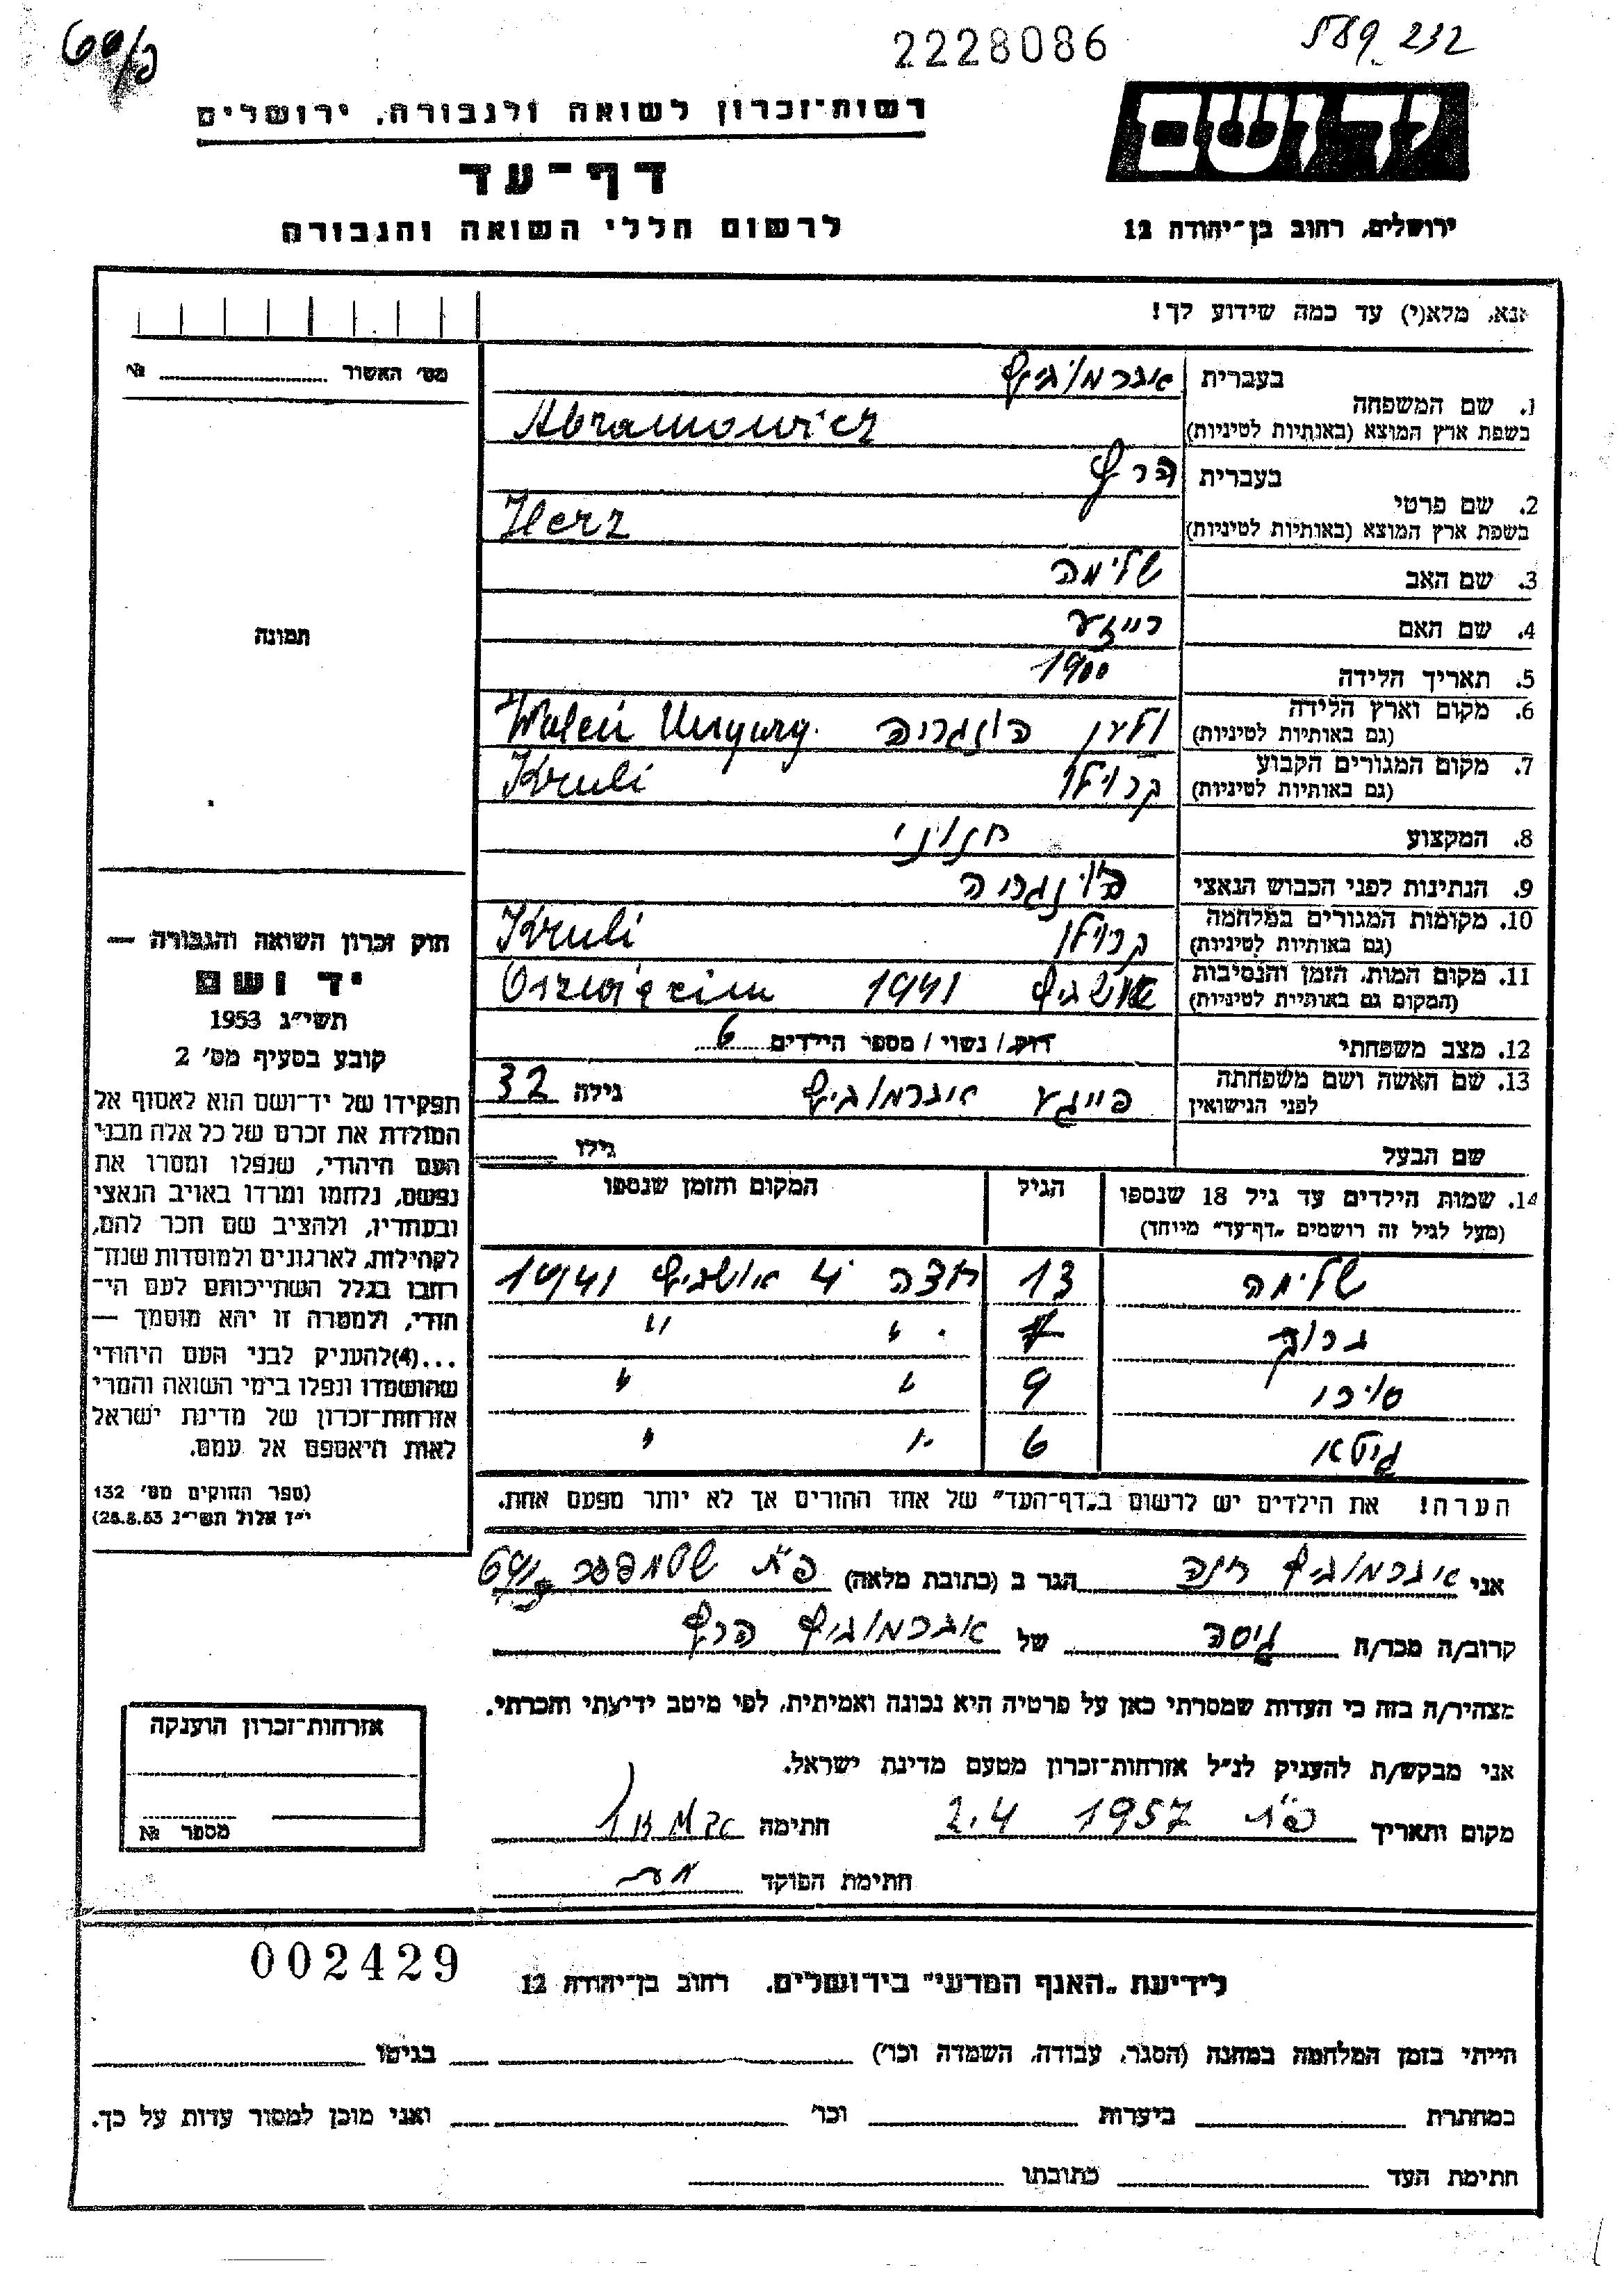 60/פ
2228086
589 232
רשות־זכרון לשואה ולגבורה, ירושלים
דף־עד
לרשום חללי השואה והגבורה
יד ושם
ירושלים, רחוב בן־יהודה 12
אנא, מלא(י) עד כמה שידוע לך!
מס' האשור № 
תמונה
בעברית אברמוביץ
1. שם המשפחה
בשפת ארץ המוצא (באותיות לטיניות) Abramowicz
בעברית הרץ
2. שם פרטי
בשפת ארץ המוצא (באותיות לטיניות) Herz
3. שם האב שלימה
4. שם האם רייזע
5. תאריך הלידה 1900
6. מקום וארץ הלידה
(גם באותיות לטיניות) הונגריה
7. מקום המגורים הקבוע
(גם באותיות לטיניות) Kruli
8. המקצוע חנוני
9. הנתינות לפני הכבוש הנאצי הונגריה
10. מקומות המגורים במלחמה
(גם באותיות לטיניות) Kruli
11. מקום המות, הזמן והנסיבות
(המקום גם באותיות לטיניות) אושביץ 1941
12. מצב משפחתי רווק / נשוי / מספר הילדים 6
13. שם האשה ושם משפחתה
לפני הנישואין פייגע אברמוביץ גילה 32
שם הבעל גילו
14. שמות הילדים עד גיל 18 שנספו הגיל המקום והזמן שנספו
(מעל לגיל זה רושמים "דף־עד" מיוחד)
שלימה 13 אושביץ 1941
ברוך 7 " "
9 " "
גיטא 6 " "
הערה! את הילדים יש לרשום ב"דף־העד" של אחד ההורים אך לא יותר מפעם אחת.
חוק זכרון השואה והגבורה —
יד ושם
תשי"ג 1953
קובע בסעיף מס' 2
תפקידו של יד־ושם הוא לאסוף אל
המולדת את זכרם של כל אלה מבני
העם היהודי, שנפלו ומסרו את
נפשם, נלחמו ומרדו באויב הנאצי
ובעוזריו, ולהציב שם וזכר להם,
לקהילות, לארגונים ולמוסדות שנח־
רבו בגלל השתייכותם לעם הי־
הודי, ולמטרה זו יהא מוסמך —
...(4) להעניק לבני העם היהודי
שהושמדו ונפלו בימי השואה והמרי
אזרחות־זכרון של מדינת ישראל
לאות היאספם אל עמם.
(ספר החוקים מס' 132
י"ז אלול תשי"ג 28.8.53)
אני אברמוביץ חנה הגר ב (כתובת מלאה) פ"ת
קרוב/ה מכר/ה גיסה של אברמוביץ הרץ
מצהיר/ה בזה כי העדות שמסרתי כאן על פרטיה היא נכונה ואמיתית, לפי מיטב ידיעתי והכרתי.
אני מבקש/ת להעניק לנ"ל אזרחות־זכרון מטעם מדינת ישראל.
מקום ותאריך פ"ת 1957 2.4 חתימה
חתימת הפוקד
אזרחות־זכרון הוענקה
מספר №
002429
לידיעת "האגף המדעי" בירושלים, רחוב בן־יהודה 12
הייתי בזמן המלחמה במחנה (הסגר, עבודה, השמדה וכו') בגיטו
במחתרת ביערות וכו' ואני מוכן למסור עדות על כך.
חתימת העד כתובתו